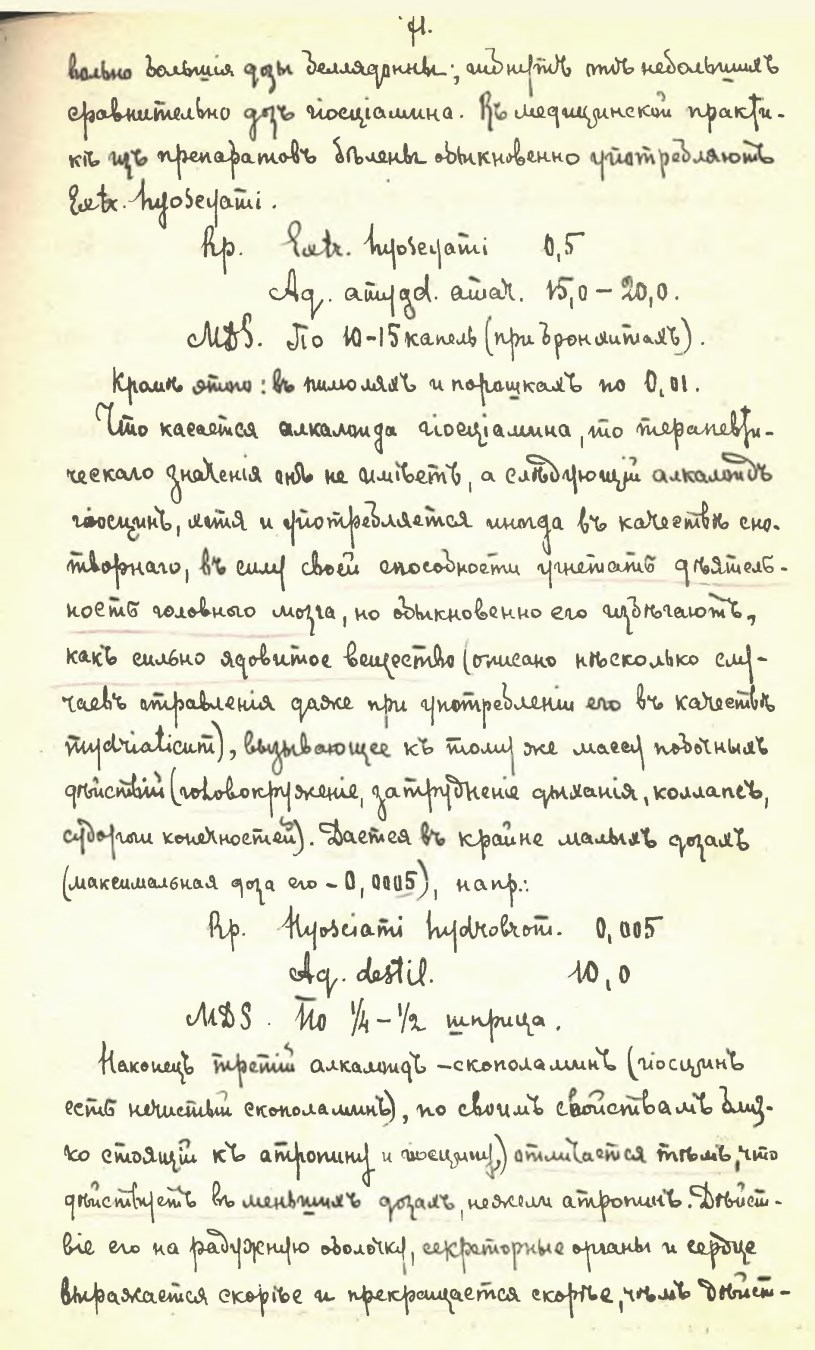 71.
вольно большія дозы белладонны; гибнутъ отъ небольшихъ
сравнительно дозъ гіосціамина. Въ медицинской практи-
кѣ изъ препаратовъ бѣлены обыкновенно употребляютъ
Extr. hyoscyami.
Rp. Extr. hyoscyami 0,5
Aq. amygd. amar. 15,0 – 20,0.
MDS. По 10-15 капель (при бронхитахъ).
Кромѣ этого: въ пилюляхъ и порошкахъ по 0,01.
Что касается алкалоида гіосціамина, то терапевти-
ческаго значенія онъ не имѣетъ, а слѣдующій алкалоидъ
гіосцинъ, хотя и употребляется иногда въ качествѣ сно-
творнаго, въ силу своей способности угнетать дѣятель-
ность головного мозга, но обыкновенно его избѣгаютъ,
какъ сильно ядовитое вещество (описано нѣсколько слу-
чаевъ отравленія даже при употребленіи его въ качествѣ
mydriaticum), вызывающее къ тому же массу побочныхъ
дѣйствій (головокруженіе, затрудненіе дыханія, коллапсъ,
судороги конечностей). Дается въ крайне малыхъ дозахъ
(максимальная доза его – 0,0005), напр.:
Rp. Hyosciami hydrobrom. 0,005
Aq. destil. 10,0
MDS. По 1/4 – 1/2 шприца.
Наконецъ третій алкалоидъ – скополаминъ (гіосцинъ
есть нечистый скополаминъ), по своимъ свойствамъ близ-
ко стоящій къ атропину и гіосцину,) отличается тѣмъ, что
дѣйствуетъ въ меньшихъ дозахъ, нежели атропинъ. Дѣйст-
віе его на радужную оболочку, секреторные органы и сердце
выражается скорѣе и прекращается скорѣе, чѣмъ дѣйст-